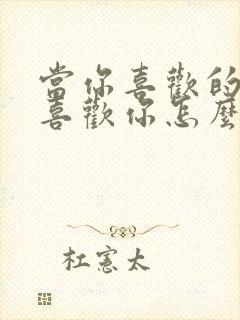 當你喜歡的
喜歡你怎麼
杜憲太